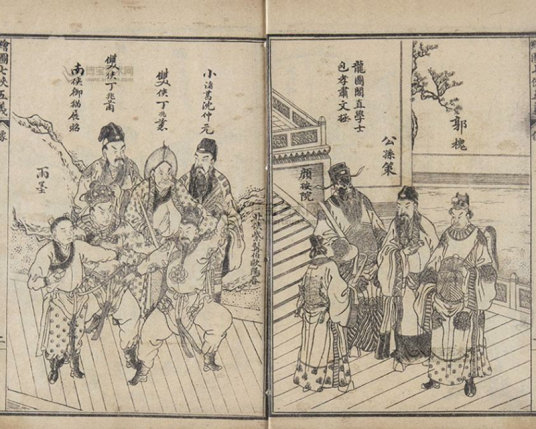 郭槐
龍圖閣直學士
包孝肅文拯
公孫策
顏按院
小諸葛沈仲元
雙俠丁兆蕙
雙俠丁兆蘭
南俠御貓展昭
雨墨
繪圖七俠五義
像
二